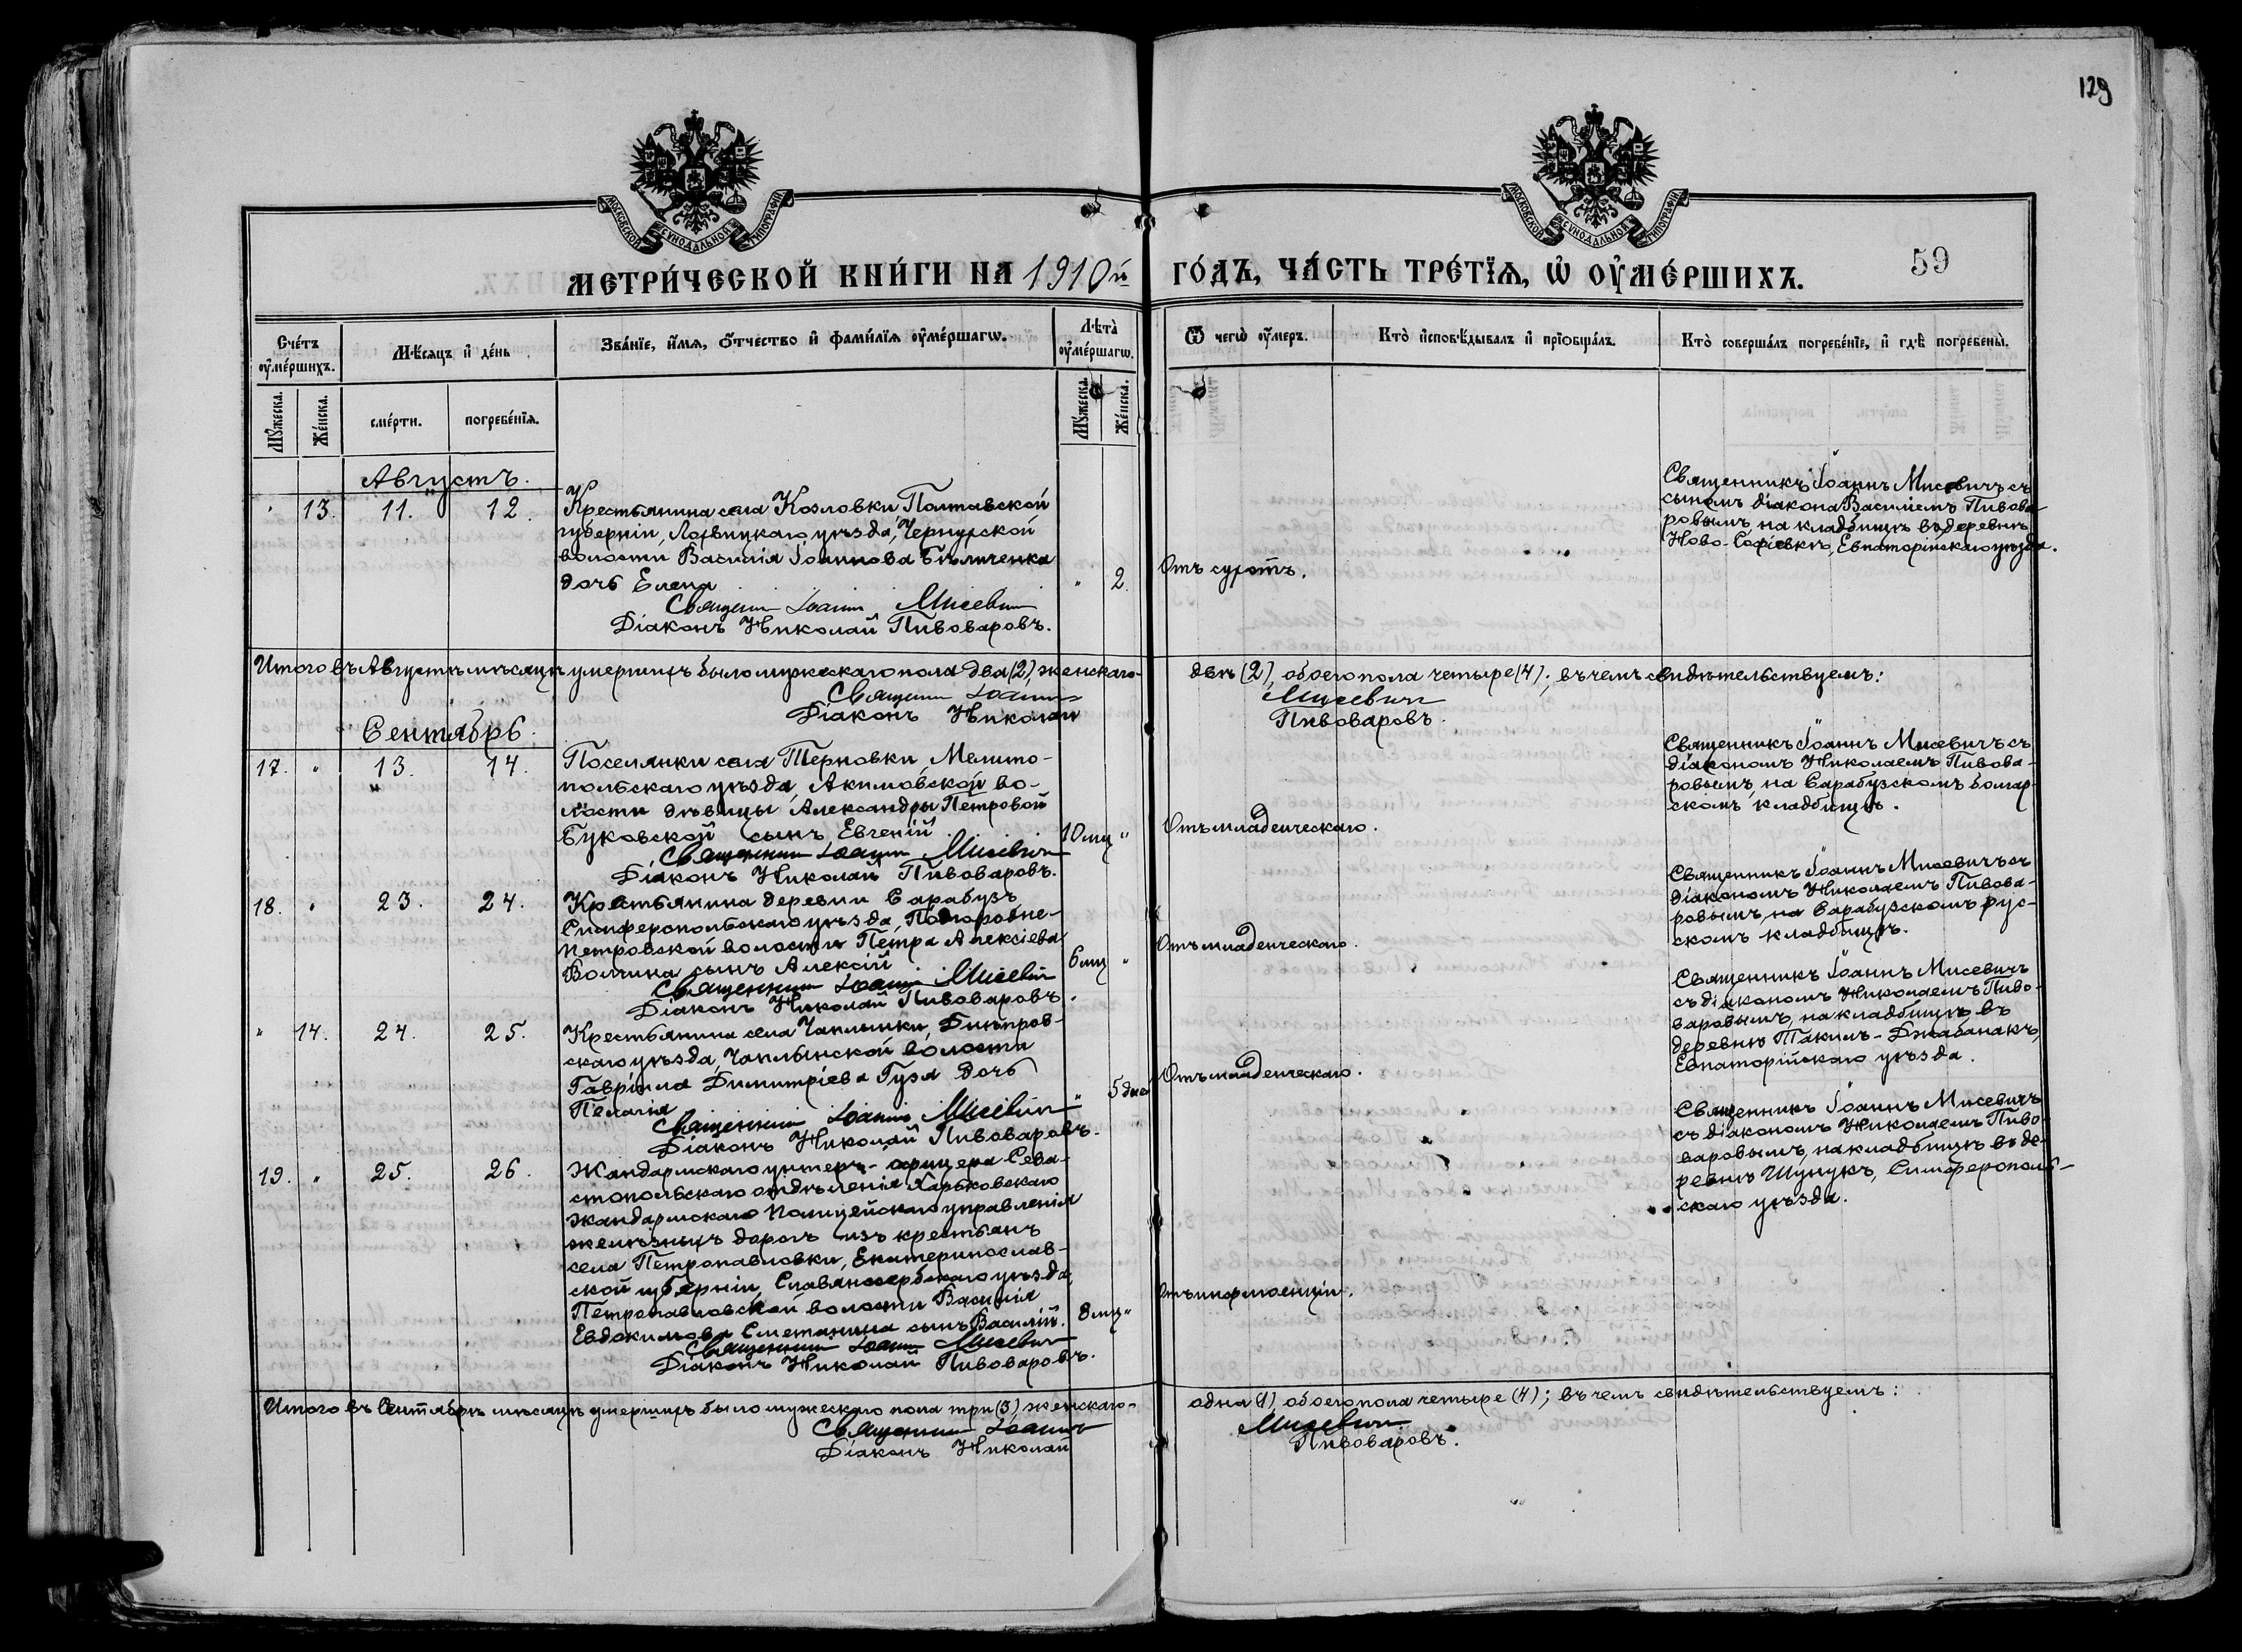 129
МОСКОВСКОЙ СУНОДАЛЬНОЙ ТИПОГРАФІИ
МОСКОВСКОЙ СУНОДАЛЬНОЙ ТИПОГРАФІИ
59
МЕТРИ́ЧЕСКОЙ КНИ́ГИ НА 1910й ГО́ДЪ, ЧА́СТЬ ТРЕ́ТЇѦ, Ѡ҆ ОУ҆МЕ́РШИХЪ.
Сче́тъ оу҆ме́ршихъ.
Мѣ́сяцъ и҆ де́нь
Зва́нїе, и҆́мѧ, ѻ҆́тчество и҆ фами́лїѧ оу҆ме́ршагѡ.
Лѣта̀ оу҆ме́ршагѡ.
Ѿ чегѡ̀ оу҆́меръ.
Кто̀ и҆сповѣ́дывалъ и҆ прїѡбща́лъ.
Кто̀ соверша́лъ погребе́нїе, и҆ гдѣ̀ погребены̀.
Мꙋ́жеска.
Же́нска.
сме́рти.
погребе́нїѧ.
Мꙋ́жеска.
Же́нска.
Августъ.
" 13. 11. 12.
Крестьянина села Козловки, Полтавской
губерніи, Лохвицкаго уѣзда, Чернухской
волости Василія Іоаннова Бѣличенка
дочь Елена
" 2.
Священн Іоанн Мисевич
Діаконъ Николай Пивоваровъ.
Отъ сухотъ.
Священникъ Іоаннъ Мисевичъ съ
сыномъ діакона Василіемъ Пивова-
ровымъ, на кладбищѣ въ деревнѣ
Ново-Софіевкѣ, Евпаторійскаго уѣзда.
Итого въ Августѣ мѣсяцѣ умершихъ было мужескаго пола два (2), женскаго - двѣ (2), обоего пола четыре (4); въ чемъ свидѣтельствуемъ:
Священн Іоанн Мисевич
Діаконъ Николай Пивоваровъ.
Сентябрь.
17. " 13. 14.
Поселянки села Терновки, Мелито-
польскаго уѣзда, Акимовской во-
лости дѣвицы Александры Петровой
Буковской сынъ Евгеній
10 мц "
Священник Іоанн Мисевич
Діаконъ Николай Пивоваровъ.
Отъ младенческаго.
Священникъ Іоаннъ Мисевичъ съ
діакономъ Николаемъ Пивова-
ровымъ, на Сарабузскомъ болгар-
скомъ кладбищѣ.
18. " 23. 24.
Крестьянина деревни Сарабузъ
Симферопольскаго уѣзда, Подгородне-
Петровской волости Петра Алексіева
Волчина сынъ Алексій
6 мц "
Священник Іоанн Мисевич
Діаконъ Николай Пивоваровъ.
Отъ младенческаго.
Священникъ Іоаннъ Мисевичъ съ
діакономъ Николаемъ Пивова-
ровымъ, на Сарабузскомъ рус-
скомъ кладбищѣ.
" 14. 24. 25.
Крестьянина села Чаплынки, Днѣпров-
скаго уѣзда, Чаплынской волости
Гавріила Димитріева Гуза дочь
Пелагія
" 5 дней
Священник Іоанн Мисевич
Діаконъ Николай Пивоваровъ.
Отъ младенческаго.
Священникъ Іоаннъ Мисевичъ
съ діакономъ Николаемъ Пиво-
варовымъ, на кладбищѣ въ
деревнѣ Такилъ-Джабанакъ,
Евпаторійскаго уѣзда.
19. " 25. 26.
Жандармскаго унтеръ-офицера Сева-
стопольскаго отдѣленія Харьковскаго
жандармскаго полицейскаго управленія
желѣзныхъ дорогъ изъ крестьянъ
села Петропавловки, Екатеринослав-
ской губерніи, Славяносербскаго уѣзда,
Петропавловской волости Василія
Евдокимова Сметанина сынъ Василій.
8 мц "
Священник Іоанн Мисевич
Діаконъ Николай Пивоваровъ.
Отъ инфлюенціи.
Священникъ Іоаннъ Мисевичъ
съ діакономъ Николаемъ Пиво-
варовымъ, на кладбищѣ въ де-
ревнѣ Шунукъ, Симферополь-
скаго уѣзда.
Итого въ Сентябрѣ мѣсяцѣ умершихъ было мужескаго пола три (3), женскаго - одна (1), обоего пола четыре (4); въ чемъ свидѣтельствуемъ:
Священник Іоаннъ Мисевич
Діаконъ Николай Пивоваровъ.